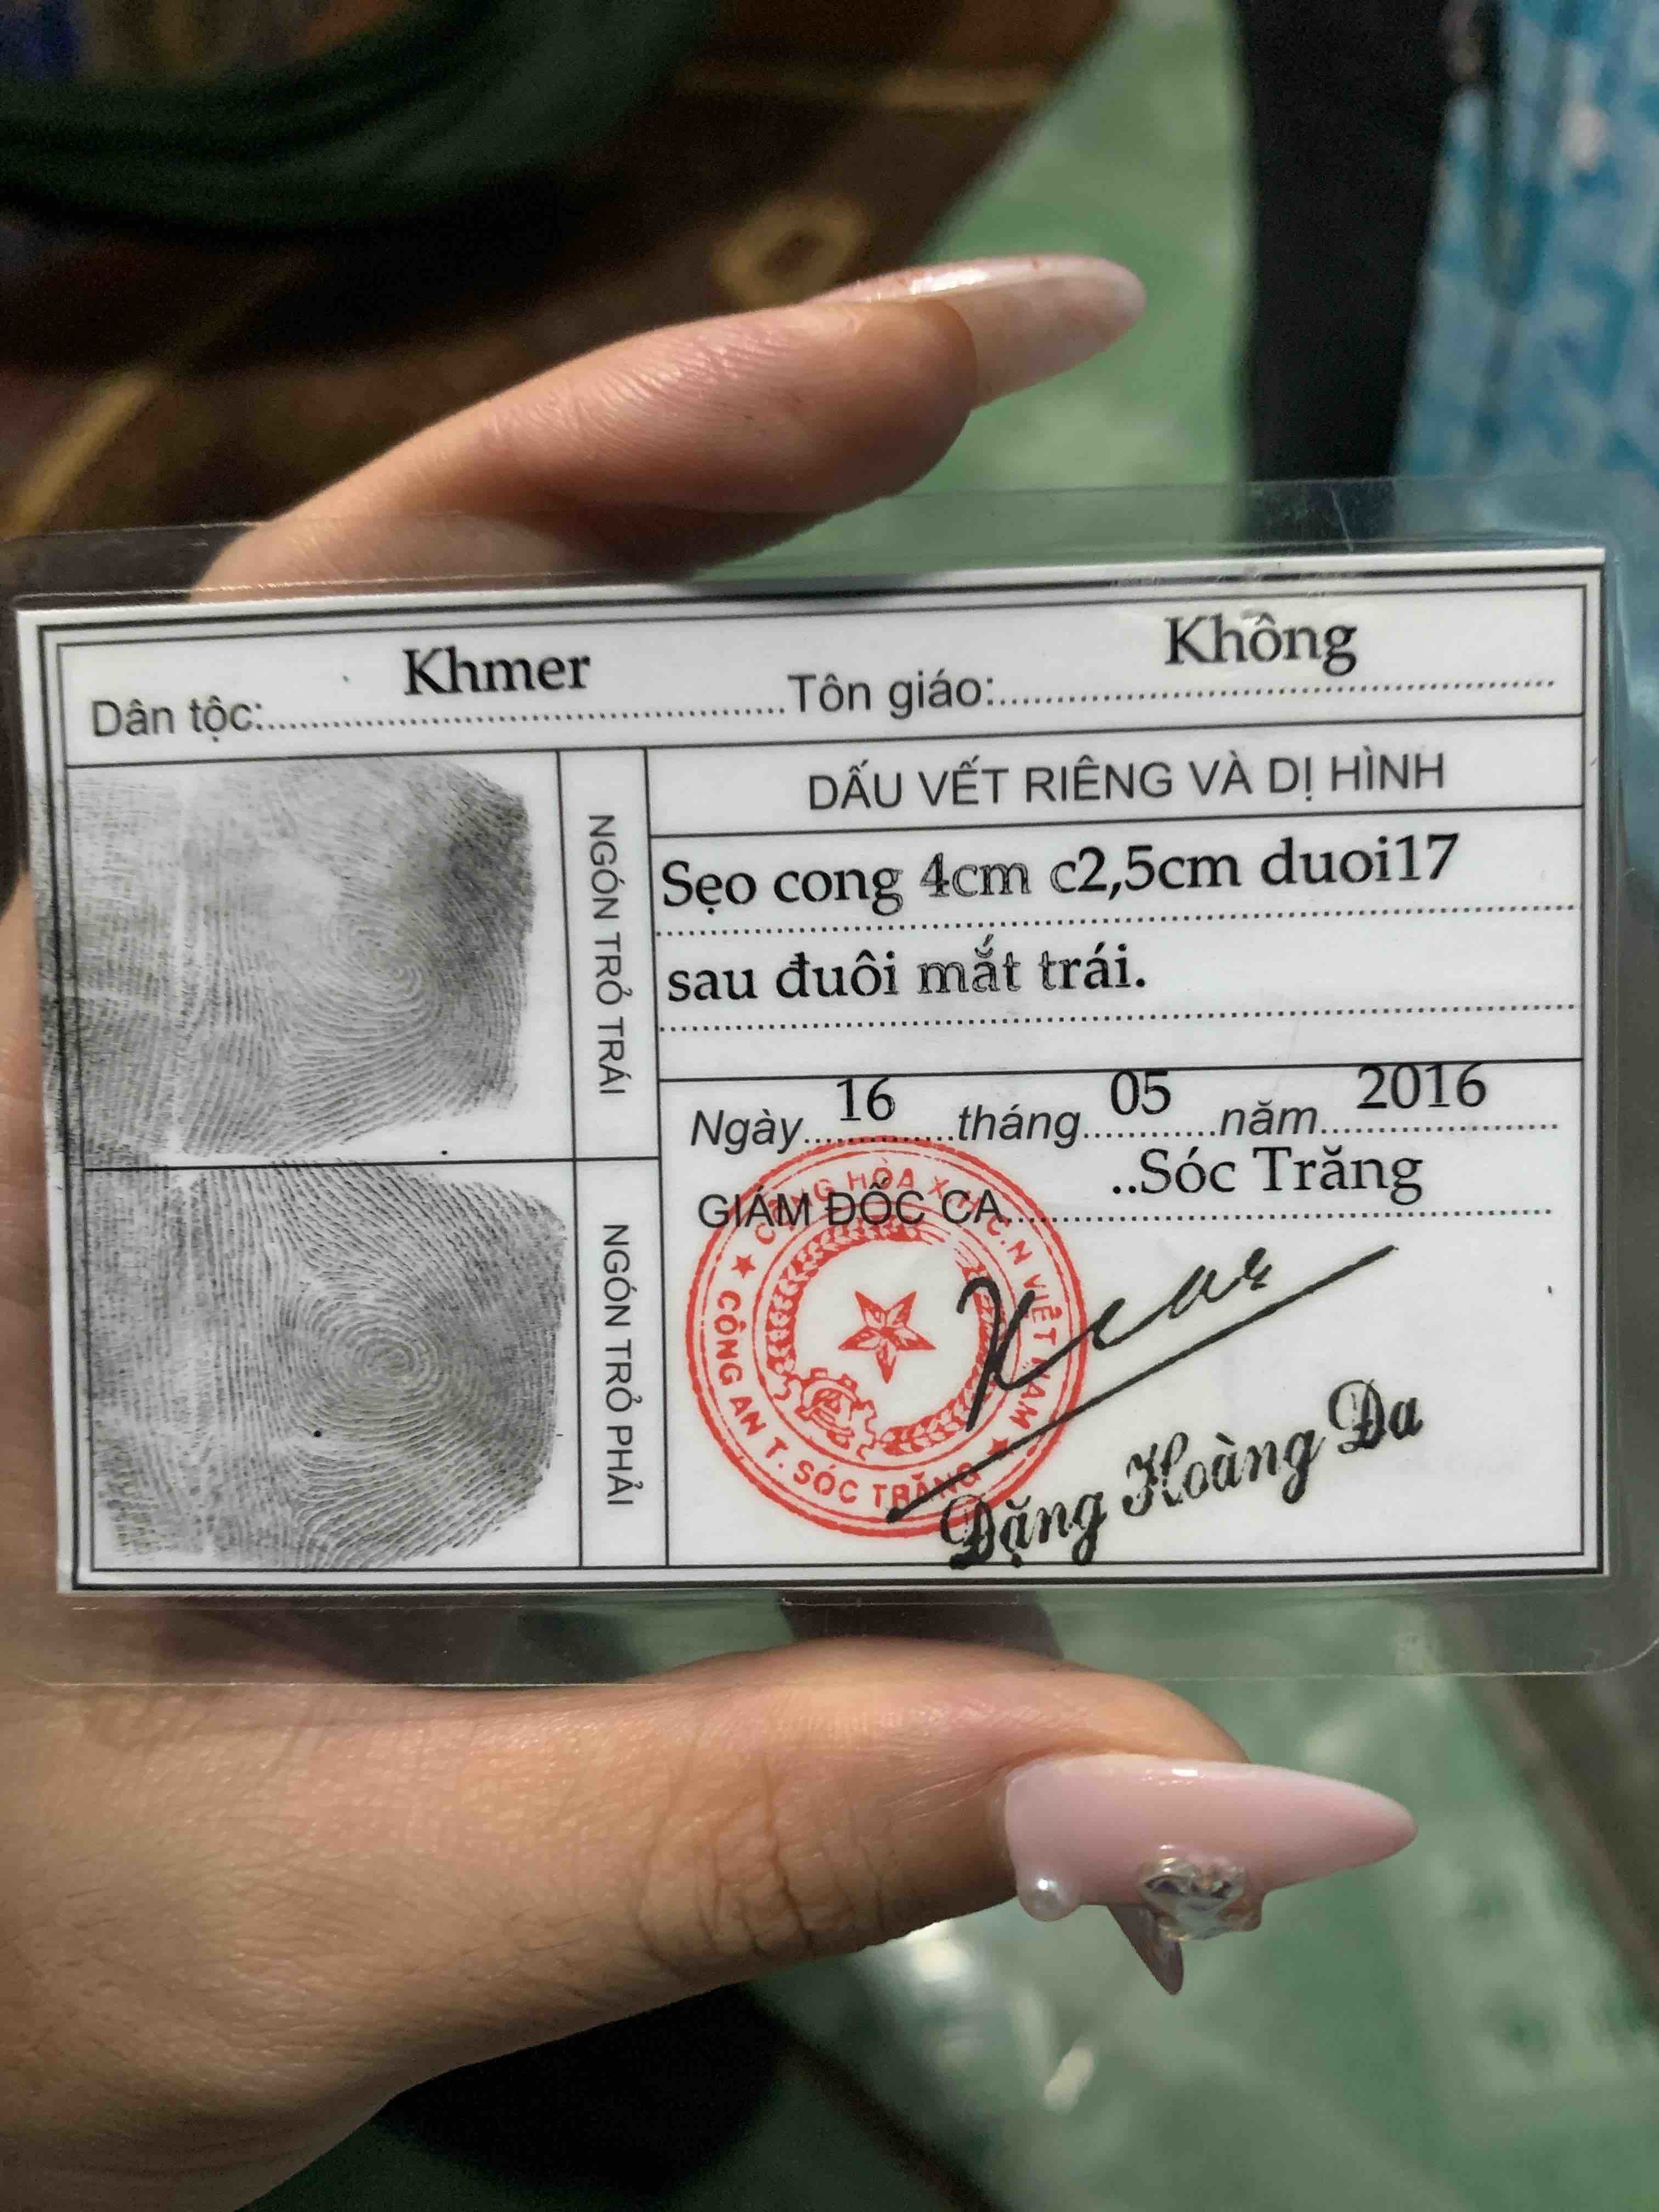 Dân tộc: Khmer Tôn giáo: Không
NGÓN TRỎ TRÁI
DẤU VẾT RIÊNG VÀ DỊ HÌNH
Sẹo cong 4cm c2,5cm duoi17
sau đuôi mắt trái.
NGÓN TRỎ PHẢI
Ngày 16 tháng 05 năm 2016
GIÁM ĐỐC CA ..Sóc Trăng
CỘNG HÒA X.H.C.N VIỆT NAM
CÔNG AN T. SÓC TRĂNG
Đặng Hoàng Đa